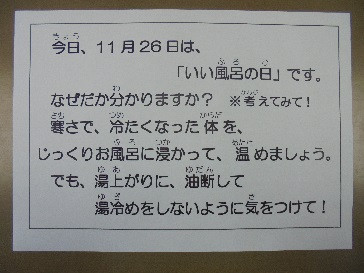 今日、11月26日は、
「いい風呂の日」です。
なぜだか分かりますか? ※考えてみて!
寒さで、冷たくなった体を、
じっくりお風呂に浸かって、温めましょう。
でも、湯上がりに、油断して
湯冷めをしないように気をつけて!